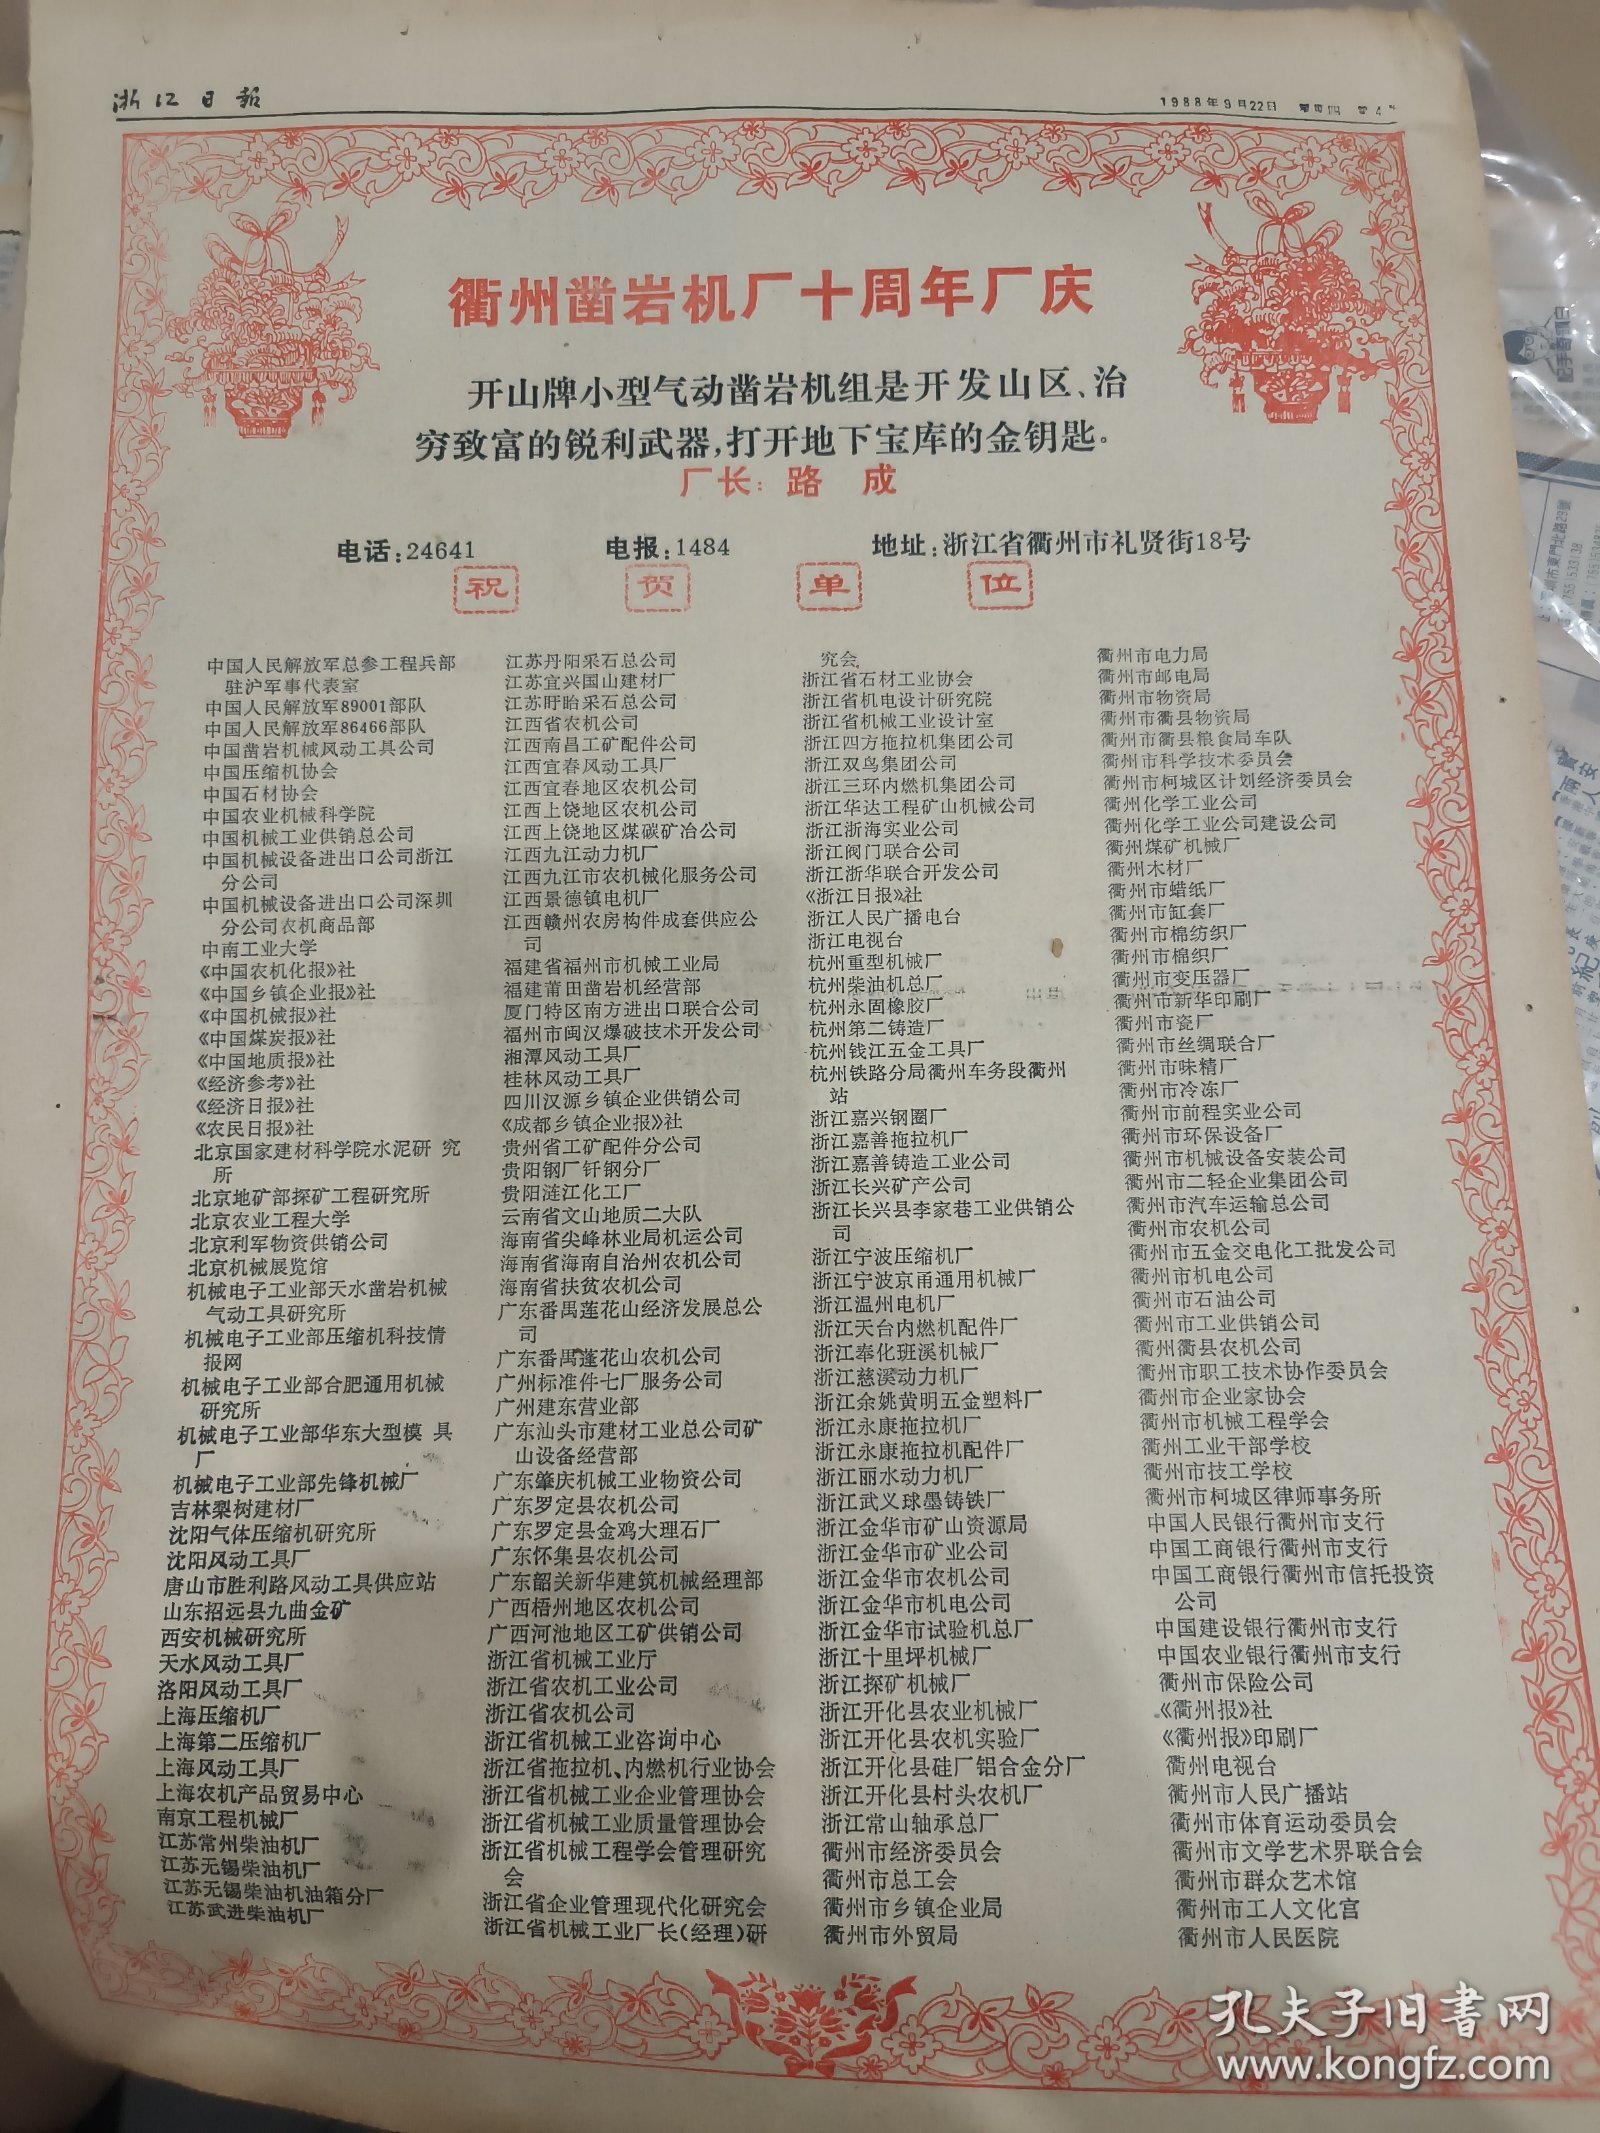 浙江日報
1988年9月22日
衢州凿岩机厂十周年厂庆
开山牌小型气动凿岩机组是开发山区、治
穷致富的锐利武器,打开地下宝库的金钥匙。
厂长：路 成
电话:24641 电报:1484 地址:浙江省衢州市礼贤街18号
祝 贺 单 位
中国人民解放军总参工程兵部
驻沪军事代表室
中国人民解放军89001部队
中国人民解放军86466部队
中国凿岩机械风动工具公司
中国压缩机协会
中国石材协会
中国农业机械科学院
中国机械工业供销总公司
中国机械设备进出口公司浙江
分公司
中国机械设备进出口公司深圳
分公司农机商品部
中南工业大学
《中国农机化报》社
《中国乡镇企业报》社
《中国机械报》社
《中国煤炭报》社
《中国地质报》社
《经济参考》社
《经济日报》社
《农民日报》社
北京国家建材科学院水泥研 究
所
北京地矿部探矿工程研究所
北京农业工程大学
北京利军物资供销公司
北京机械展览馆
机械电子工业部天水凿岩机械
气动工具研究所
机械电子工业部压缩机科技情
报网
机械电子工业部合肥通用机械
研究所
机械电子工业部华东大型模 具
厂
机械电子工业部先锋机械厂
吉林梨树建材厂
沈阳气体压缩机研究所
沈阳风动工具厂
唐山市胜利路风动工具供应站
山东招远县九曲金矿
西安机械研究所
天水风动工具厂
洛阳风动工具厂
上海压缩机厂
上海第二压缩机厂
上海风动工具厂
上海农机产品贸易中心
南京工程机械厂
江苏常州柴油机厂
江苏无锡柴油机厂
江苏无锡柴油机油箱分厂
江苏武进柴油机厂
江苏丹阳采石总公司
江苏宜兴国山建材厂
江苏盱眙采石总公司
江西省农机公司
江西南昌工矿配件公司
江西宜春风动工具厂
江西宜春地区农机公司
江西上饶地区农机公司
江西上饶地区煤碳矿冶公司
江西九江动力机厂
江西九江市农机械化服务公司
江西景德镇电机厂
江西赣州农房构件成套供应公
司
福建省福州市机械工业局
福建莆田凿岩机经营部
厦门特区南方进出口联合公司
福州市闽汉爆破技术开发公司
湘潭风动工具厂
桂林风动工具厂
四川汉源乡镇企业供销公司
《成都乡镇企业报》社
贵州省工矿配件分公司
贵阳钢厂钎钢分厂
贵阳涟江化工厂
云南省文山地质二大队
海南省尖峰林业局机运公司
海南省海南自治州农机公司
海南省扶贫农机公司
广东番禺莲花山经济发展总公
司
广东番禺莲花山农机公司
广州标准件七厂服务公司
广州建东营业部
广东汕头市建材工业总公司矿
山设备经营部
广东肇庆机械工业物资公司
广东罗定县农机公司
广东罗定县金鸡大理石厂
广东怀集县农机公司
广东韶关新华建筑机械经理部
广西梧州地区农机公司
广西河池地区工矿供销公司
浙江省机械工业厅
浙江省农机工业公司
浙江省农机公司
浙江省机械工业咨询中心
浙江省拖拉机、内燃机行业协会
浙江省机械工业企业管理协会
浙江省机械工业质量管理协会
浙江省机械工程学会管理研究
会
浙江省企业管理现代化研究会
浙江省机械工业厂长(经理)研
究会
浙江省石材工业协会
浙江省机电设计研究院
浙江省机械工业设计室
浙江四方拖拉机集团公司
浙江双鸟集团公司
浙江三环内燃机集团公司
浙江华达工程矿山机械公司
浙江浙海实业公司
浙江阀门联合公司
浙江浙华联合开发公司
《浙江日报》社
浙江人民广播电台
浙江电视台
杭州重型机械厂
杭州柴油机总厂
杭州永固橡胶厂
杭州第二铸造厂
杭州钱江五金工具厂
杭州铁路分局衢州车务段衢州
站
浙江嘉兴钢圈厂
浙江嘉善拖拉机厂
浙江嘉善铸造工业公司
浙江长兴矿产公司
浙江长兴县李家巷工业供销公
司
浙江宁波压缩机厂
浙江宁波京甬通用机械厂
浙江温州电机厂
浙江天台内燃机配件厂
浙江奉化班溪机械厂
浙江慈溪动力机厂
浙江余姚黄明五金塑料厂
浙江永康拖拉机厂
浙江永康拖拉机配件厂
浙江丽水动力机厂
浙江武义球墨铸铁厂
浙江金华市矿山资源局
浙江金华市矿业公司
浙江金华市农机公司
浙江金华市机电公司
浙江金华市试验机总厂
浙江十里坪机械厂
浙江探矿机械厂
浙江开化县农业机械厂
浙江开化县农机实验厂
浙江开化县硅厂铝合金分厂
浙江开化县村头农机厂
浙江常山轴承总厂
衢州市经济委员会
衢州市总工会
衢州市乡镇企业局
衢州市外贸局
衢州市电力局
衢州市邮电局
衢州市物资局
衢州市衢县物资局
衢州市衢县粮食局车队
衢州市科学技术委员会
衢州市柯城区计划经济委员会
衢州化学工业公司
衢州化学工业公司建设公司
衢州煤矿机械厂
衢州木材厂
衢州市蜡纸厂
衢州市缸套厂
衢州市棉纺织厂
衢州市棉织厂
衢州市变压器厂
衢州市新华印刷厂
衢州市瓷厂
衢州市丝绸联合厂
衢州市味精厂
衢州市冷冻厂
衢州市前程实业公司
衢州市环保设备厂
衢州市机械设备安装公司
衢州市二轻企业集团公司
衢州市汽车运输总公司
衢州市农机公司
衢州市五金交电化工批发公司
衢州市机电公司
衢州市石油公司
衢州市工业供销公司
衢州衢县农机公司
衢州市职工技术协作委员会
衢州市企业家协会
衢州市机械工程学会
衢州工业干部学校
衢州市技工学校
衢州市柯城区律师事务所
中国人民银行衢州市支行
中国工商银行衢州市支行
中国工商银行衢州市信托投资
公司
中国建设银行衢州市支行
中国农业银行衢州市支行
衢州市保险公司
《衢州报》社
《衢州报》印刷厂
衢州电视台
衢州市人民广播站
衢州市体育运动委员会
衢州市文学艺术界联合会
衢州市群众艺术馆
衢州市工人文化宫
衢州市人民医院
孔夫子旧书网
www.kongfz.com